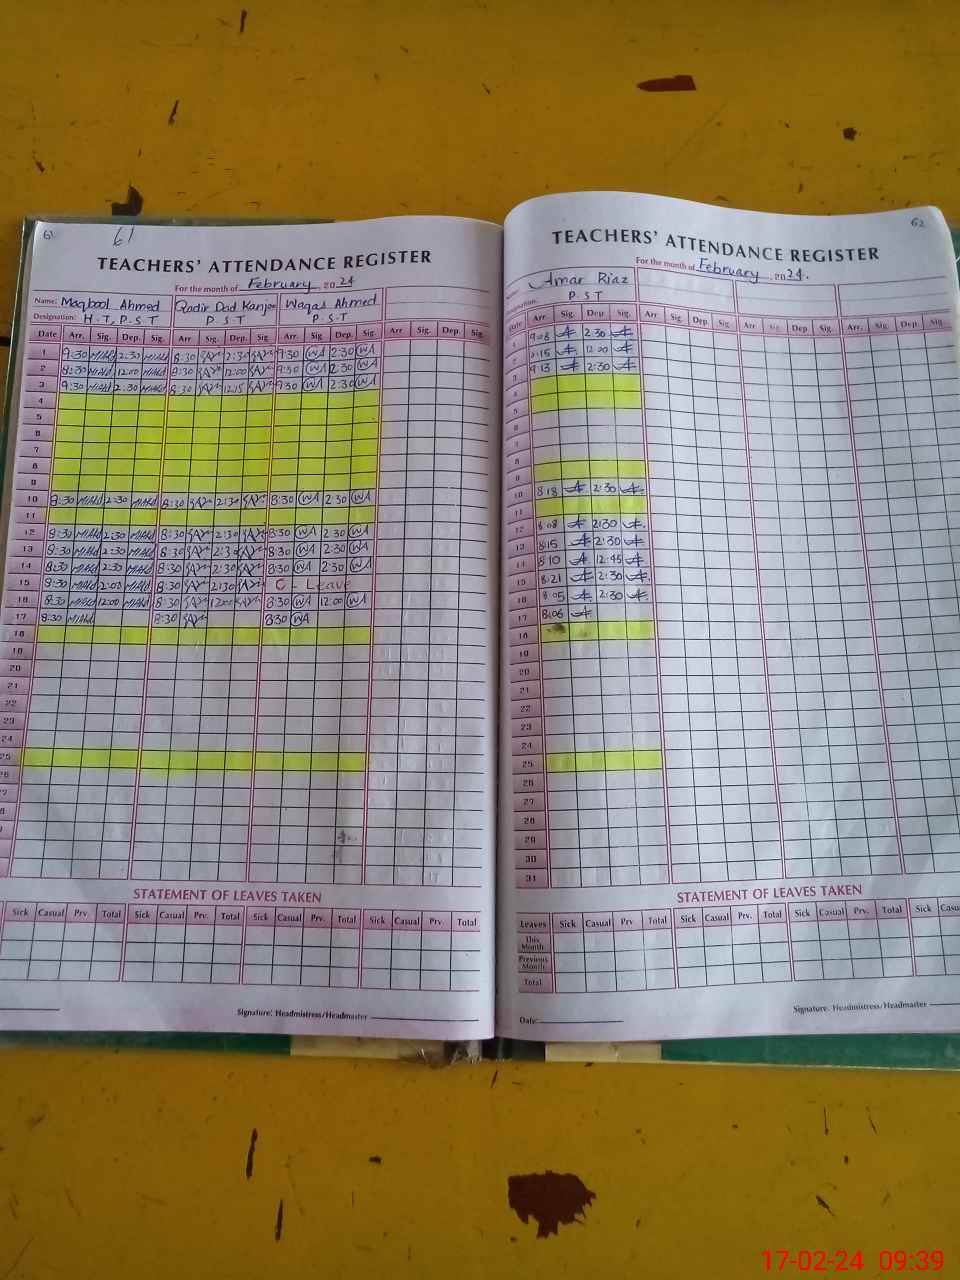 61 61
TEACHERS' ATTENDANCE REGISTER
For the month of February 2024
Name: Maqbool Ahmed Qadir Dad Kanjoo Waqas Ahmed
Designation: H.T, P.S.T P.S.T P.S.T
Date Arr. Sig. Dep. Sig. Arr. Sig. Dep. Sig. Arr. Sig. Dep. Sig. Arr. Sig. Dep. Sig.
1 9:30 2:30 8:30 2:30 9:30 WA 2:30 WA
2 8:30 12:00 8:30 12:00 9:30 WA 2:30 WA
3 9:30 2:30 8:30 12:15 9:30 WA 2:30 WA
4
5
6
7
8
9
10 8:30 2:30 8:30 2:30 8:30 WA 2:30 WA
11
12 8:30 2:30 8:30 2:30 8:30 WA 2:30 WA
13 8:30 2:30 8:30 2:30 8:30 WA 2:30 WA
14 8:30 2:30 8:30 2:30 8:30 WA 2:30 WA
15 8:30 2:00 8:30 2:30 C - Leave
16 8:30 12:00 8:30 12:00 8:30 WA 12:00 WA
17 8:30 8:30 8:30 WA
18
19
20
21
22
23
24
25
26
STATEMENT OF LEAVES TAKEN
Sick Casual Prv. Total Sick Casual Prv. Total Sick Casual Prv. Total Sick Casual Prv. Total
Signature: Headmistress/Headmaster
62
TEACHERS' ATTENDANCE REGISTER
For the month of February 2024.
Amar Riaz
P.S.T
Date Arr. Sig. Dep. Sig. Arr. Sig. Dep. Sig. Arr. Sig. Dep. Sig. Arr. Sig. Dep. Sig.
1 9:08 2:30
2 12:00
3 9:13 2:30
4
5
6
7
8
9
10 8:18 2:30
11
12 8:08 2:30
13 8:15 2:30
14 8:10 12:45
15 8:21 2:30
16 8:05 2:30
17 8:06
18
19
20
21
22
23
24
25
26
27
28
29
30
31
STATEMENT OF LEAVES TAKEN
Leaves Sick Casual Prv. Total Sick Casual Prv. Total Sick Casual Prv. Total Sick
This Month
Previous Month
Total
Date: Signature. Headmistress/Headmaster
17-02-24 09:39